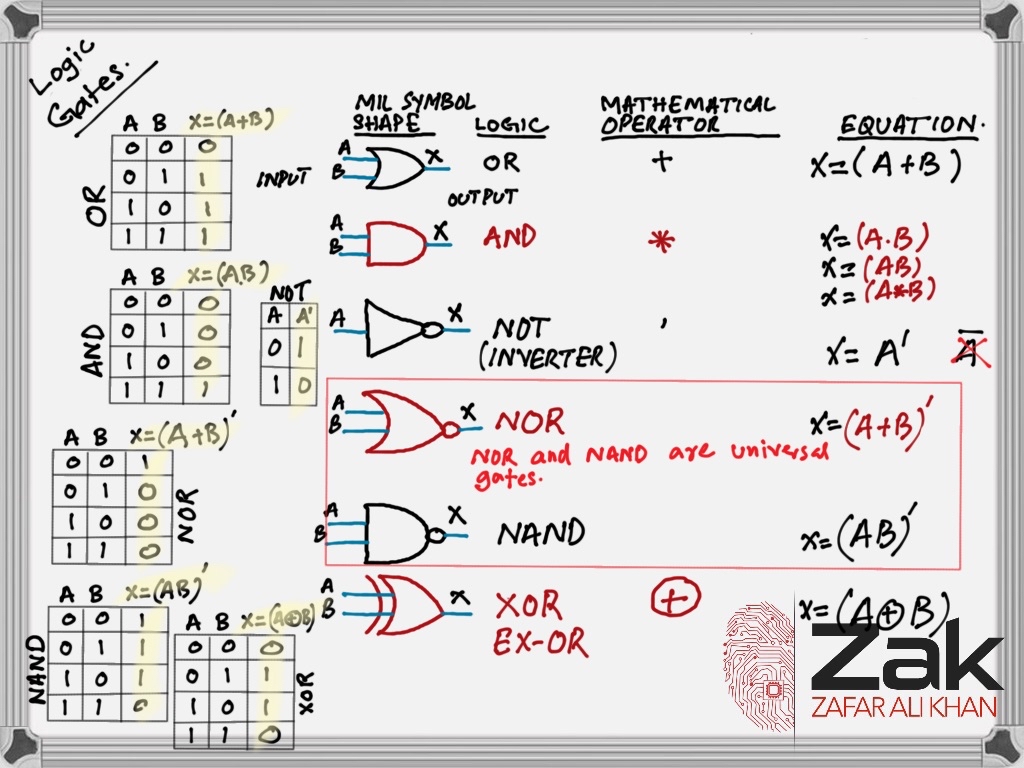 Logic
Gates.
A B X=(A+B)
0 0 0
0 1 1
1 0 1
1 1 1
OR
A B X=(A.B)
0 0 0
0 1 0
1 0 0
1 1 1
AND
NOT
A A'
0 1
1 0
A B X=(A+B)'
0 0 1
0 1 0
1 0 0
1 1 0
NOR
A B X=(AB)'
0 0 1
0 1 1
1 0 1
1 1 0
NAND
A B X=(A⊕B)
0 0 0
0 1 1
1 0 1
1 1 0
XOR
MIL SYMBOL
SHAPE
LOGIC
MATHEMATICAL
OPERATOR
EQUATION.
INPUT
A
B
X
OR
+
X=(A+B)
OUTPUT
A
B
X
AND
*
X=(A.B)
X=(AB)
X=(A*B)
A
X
NOT
(INVERTER)
'
X=A' A̅
A
B
X
NOR
X=(A+B)'
NOR and NAND are universal
gates.
A
B
X
NAND
X=(AB)'
A
B
X
XOR
EX-OR
⊕
X=(A⊕B)
Zak
ZAFAR ALI KHAN